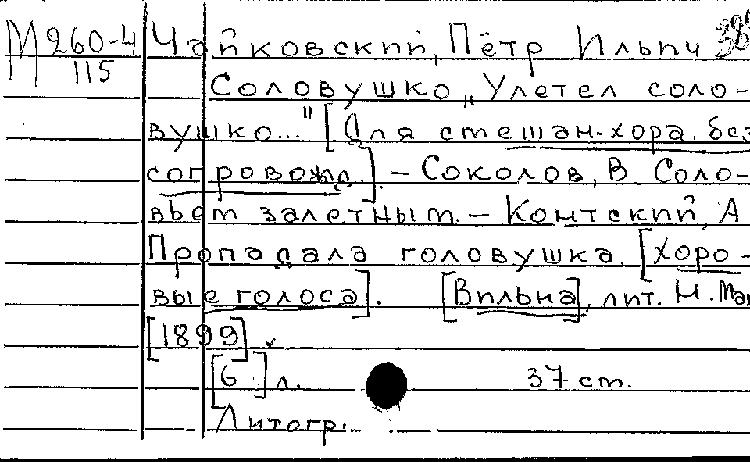 М 260-4 Чайковский, Пётр Ильич
115
Соловушко „Улетел соло-
вушко..." [Для смешан. хора без
сопровожд.] – Соколов, В. Соло-
вьем залетным. – Контский, А.
Пропадала головушка. [Хоро-
вые голоса]. [Вильна], лит. Н.
[1899].
[6] л. 37 см.
Литогр.